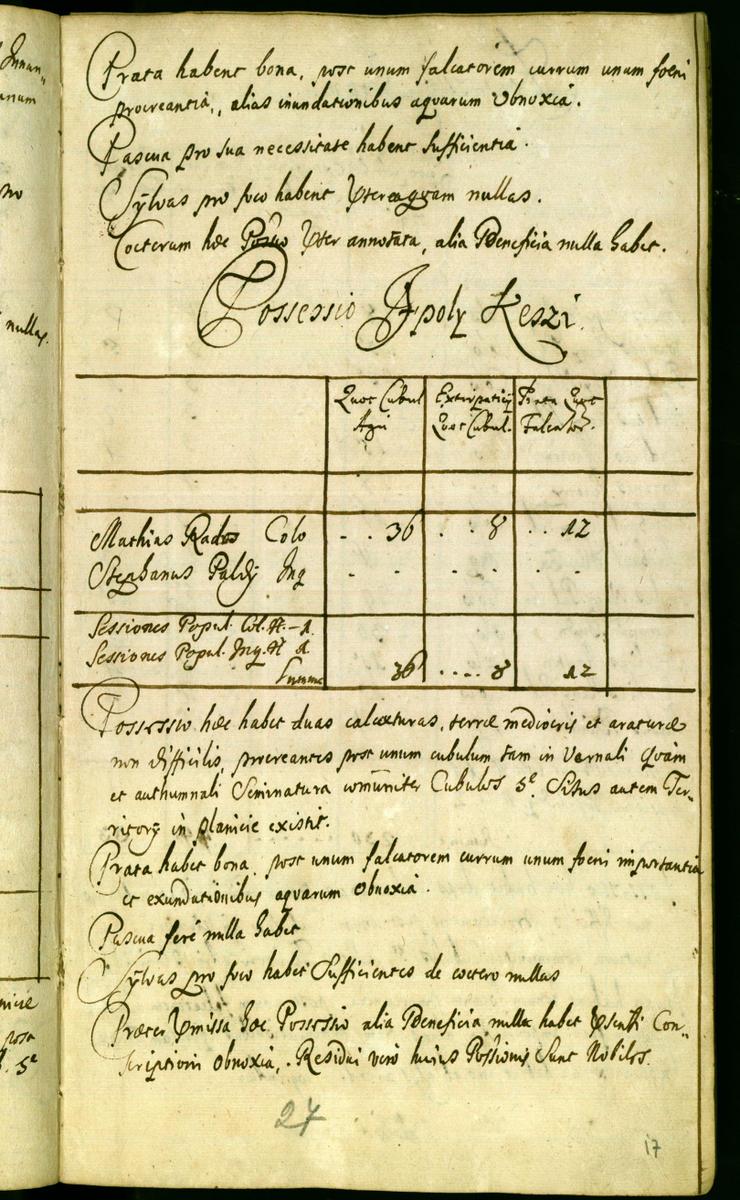 Prata habent bona, post unum falcatorem currum unum foeni
procreantia, alias inundationibus aquarum obnoxia.
Pascua pro sua necessitate habent sufficientia.
Sylvas pro foco habent nullas.
Coeterum hoec annotata, alia Beneficia nulla habet.
Possessio Ipoly Keszi.
Quot Cubul Extirpatitij Prata Quot
Agri Quot Cubul. Falcator.
Mathias Rados Colo - . . 36 . . . 8 . . 12
Stephanus Paldy Inq - - - - - -
Sessiones Popul. Col. H. - 1.
Sessiones Popul. Inq. H 1
Summa 36 .... 8 12
Possessio hoec habet duas calcaturas, terroe mediocris et araturoe
non difficilis, procreantes post unum cubulum tam in Vernali quàm
et authumnali Seminatura com̄uniter Cubulos 5e. Situs autem Ter-
ritorij in planicie existit.
Prata habet bona, post unum falcatorem currum unum foeni importantia
et exundationibus aquarum obnoxia.
Pascua ferè nulla habet
Sylvas pro foco habet Sufficientes de coetero nullas
Proeter hoec Possessio alia Beneficia nulla habet Con-
scriptioni obnoxia. Residui verò huius Possionis Sunt Nobiles.
27
17
nullas.
unum
nicie
post
5e